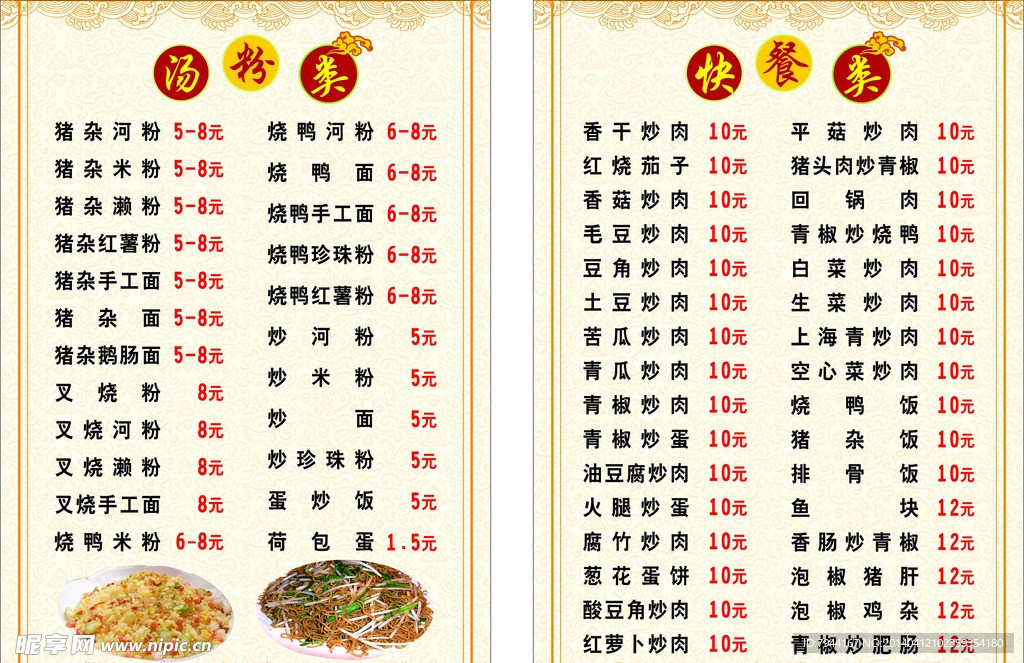 汤粉类
猪杂河粉 5-8元
猪杂米粉 5-8元
猪杂濑粉 5-8元
猪杂红薯粉 5-8元
猪杂手工面 5-8元
猪杂面 5-8元
猪杂鹅肠面 5-8元
叉烧粉 8元
叉烧河粉 8元
叉烧濑粉 8元
叉烧手工面 8元
烧鸭米粉 6-8元
烧鸭河粉 6-8元
烧鸭面 6-8元
烧鸭手工面 6-8元
烧鸭珍珠粉 6-8元
烧鸭红薯粉 6-8元
炒河粉 5元
炒米粉 5元
炒面 5元
炒珍珠粉 5元
蛋炒饭 5元
荷包蛋 1.5元
快餐类
香干炒肉 10元
红烧茄子 10元
香菇炒肉 10元
毛豆炒肉 10元
豆角炒肉 10元
土豆炒肉 10元
苦瓜炒肉 10元
青瓜炒肉 10元
青椒炒肉 10元
青椒炒蛋 10元
油豆腐炒肉 10元
火腿炒蛋 10元
腐竹炒肉 10元
葱花蛋饼 10元
酸豆角炒肉 10元
红萝卜炒肉 10元
平菇炒肉 10元
猪头肉炒青椒 10元
回锅肉 10元
青椒炒烧鸭 10元
白菜炒肉 10元
生菜炒肉 10元
上海青炒肉 10元
空心菜炒肉 10元
烧鸭饭 10元
猪杂饭 10元
排骨饭 10元
鱼块 12元
香肠炒青椒 12元
泡椒猪肝 12元
泡椒鸡杂 12元
青椒炒肥肠 12元
昵享网 www.nipic.cn